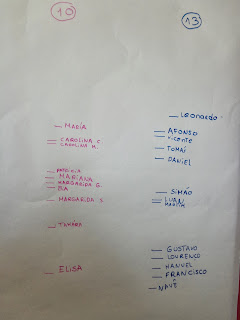 10
MARIA
CAROLINA C
CAROLINA M
MARIANA
MARGARIDA G.
BIA
MARGARIDA S
TAMARA
ELISA
13
LEONARDO
AFONSO
VICENTE
TOMÁS
DANIEL
SIMÃO
LUAN
MARTIM
GUSTAVO
LOURENÇO
MANUEL
FRANCISCO